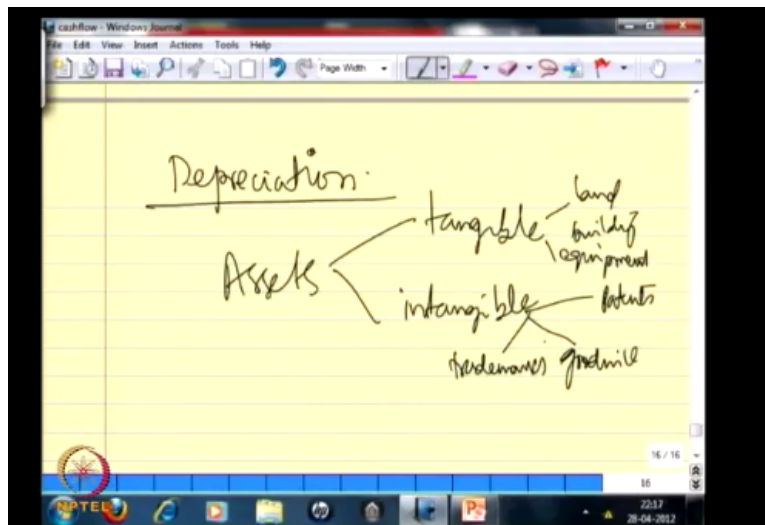 cashflow - Windows Journal
File Edit View Insert Actions Tools Help
Page Width
Depreciation.
Assets
tangible
land
building
equipment
intangible
Patents
trademarks
goodwill
16 / 16
16
NPTEL
22:17
28-04-2012